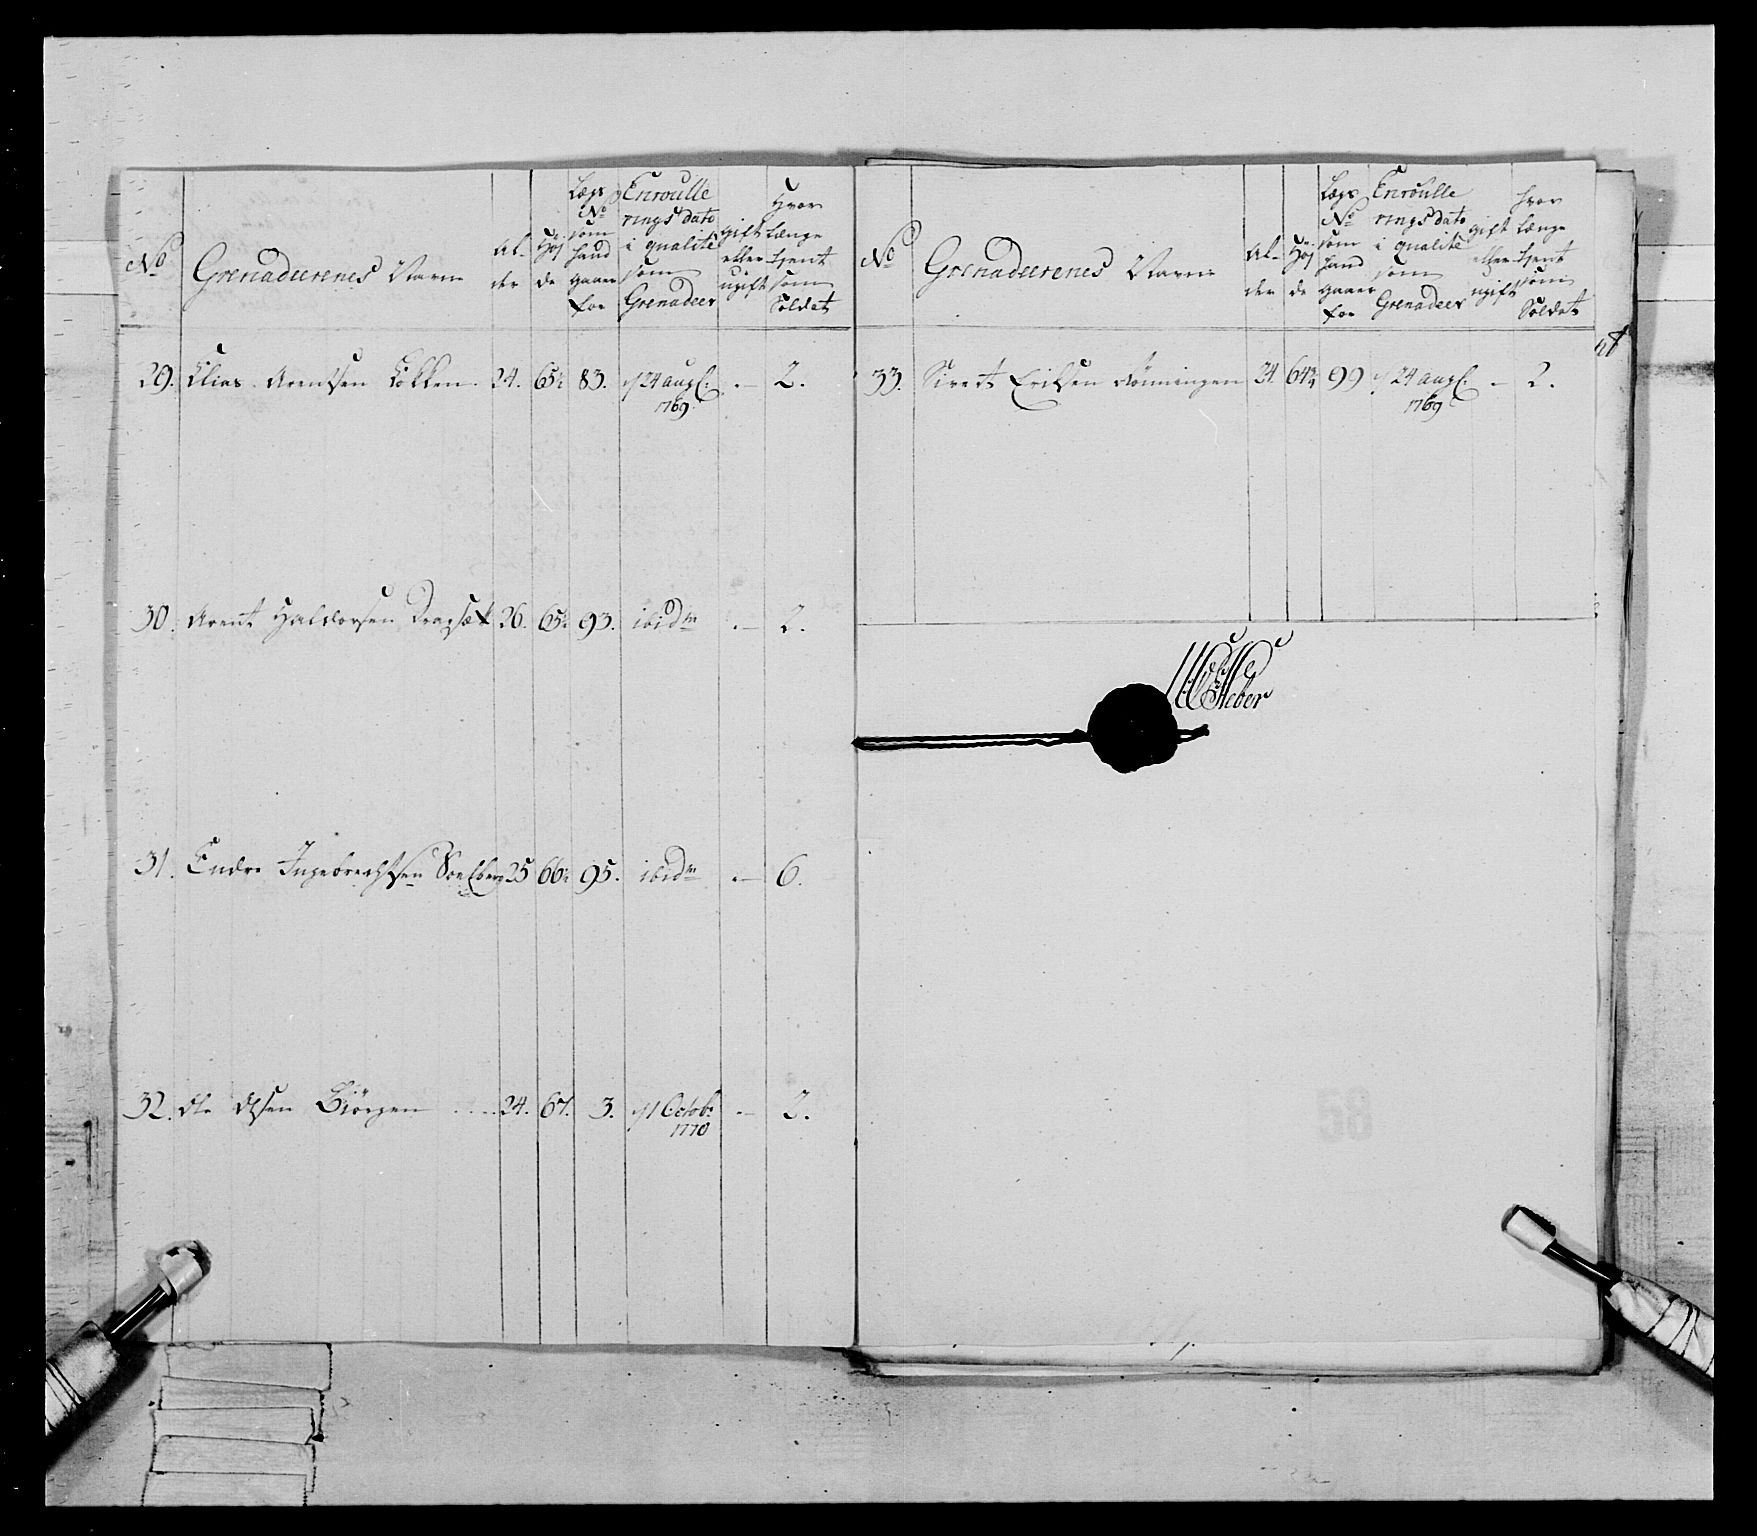 No
Grenadeerenes Navne
Al-
der
Höj
de
Lægs
No
som
hand
gaaer
for
Enroulle
ringsdato
i qualité
som
Grenadeer
gift
eller
ugift
Hvor
længe
tjent
som
Soldat
29. Elias Arentsen Løkken. 24. 65½ 83. d 24 augl. - 2.
1769
30. Arent Haldorsen Dragsæt 26. 65. 93. ibidm - 2.
31. Endre Ingebrechtsen Soelberg 25 66½ 95. ibidm - 6.
32. Ole Olsen Biörgen 24. 67. 3. d 1 Octobr - 2.
1770
No
Grenadeerenes Navne
Al-
der
Höj
de
Lægs
No
som
hand
gaaer
for
Enroulle
ringsdato
i qualité
som
Grenadeer
gift
eller
ugift
hvor
længe
tjent
som
Soldat
33. Sivert Eriksen Rönningen 24. 64¾ 99 d 24 augl. - 2.
1769
58